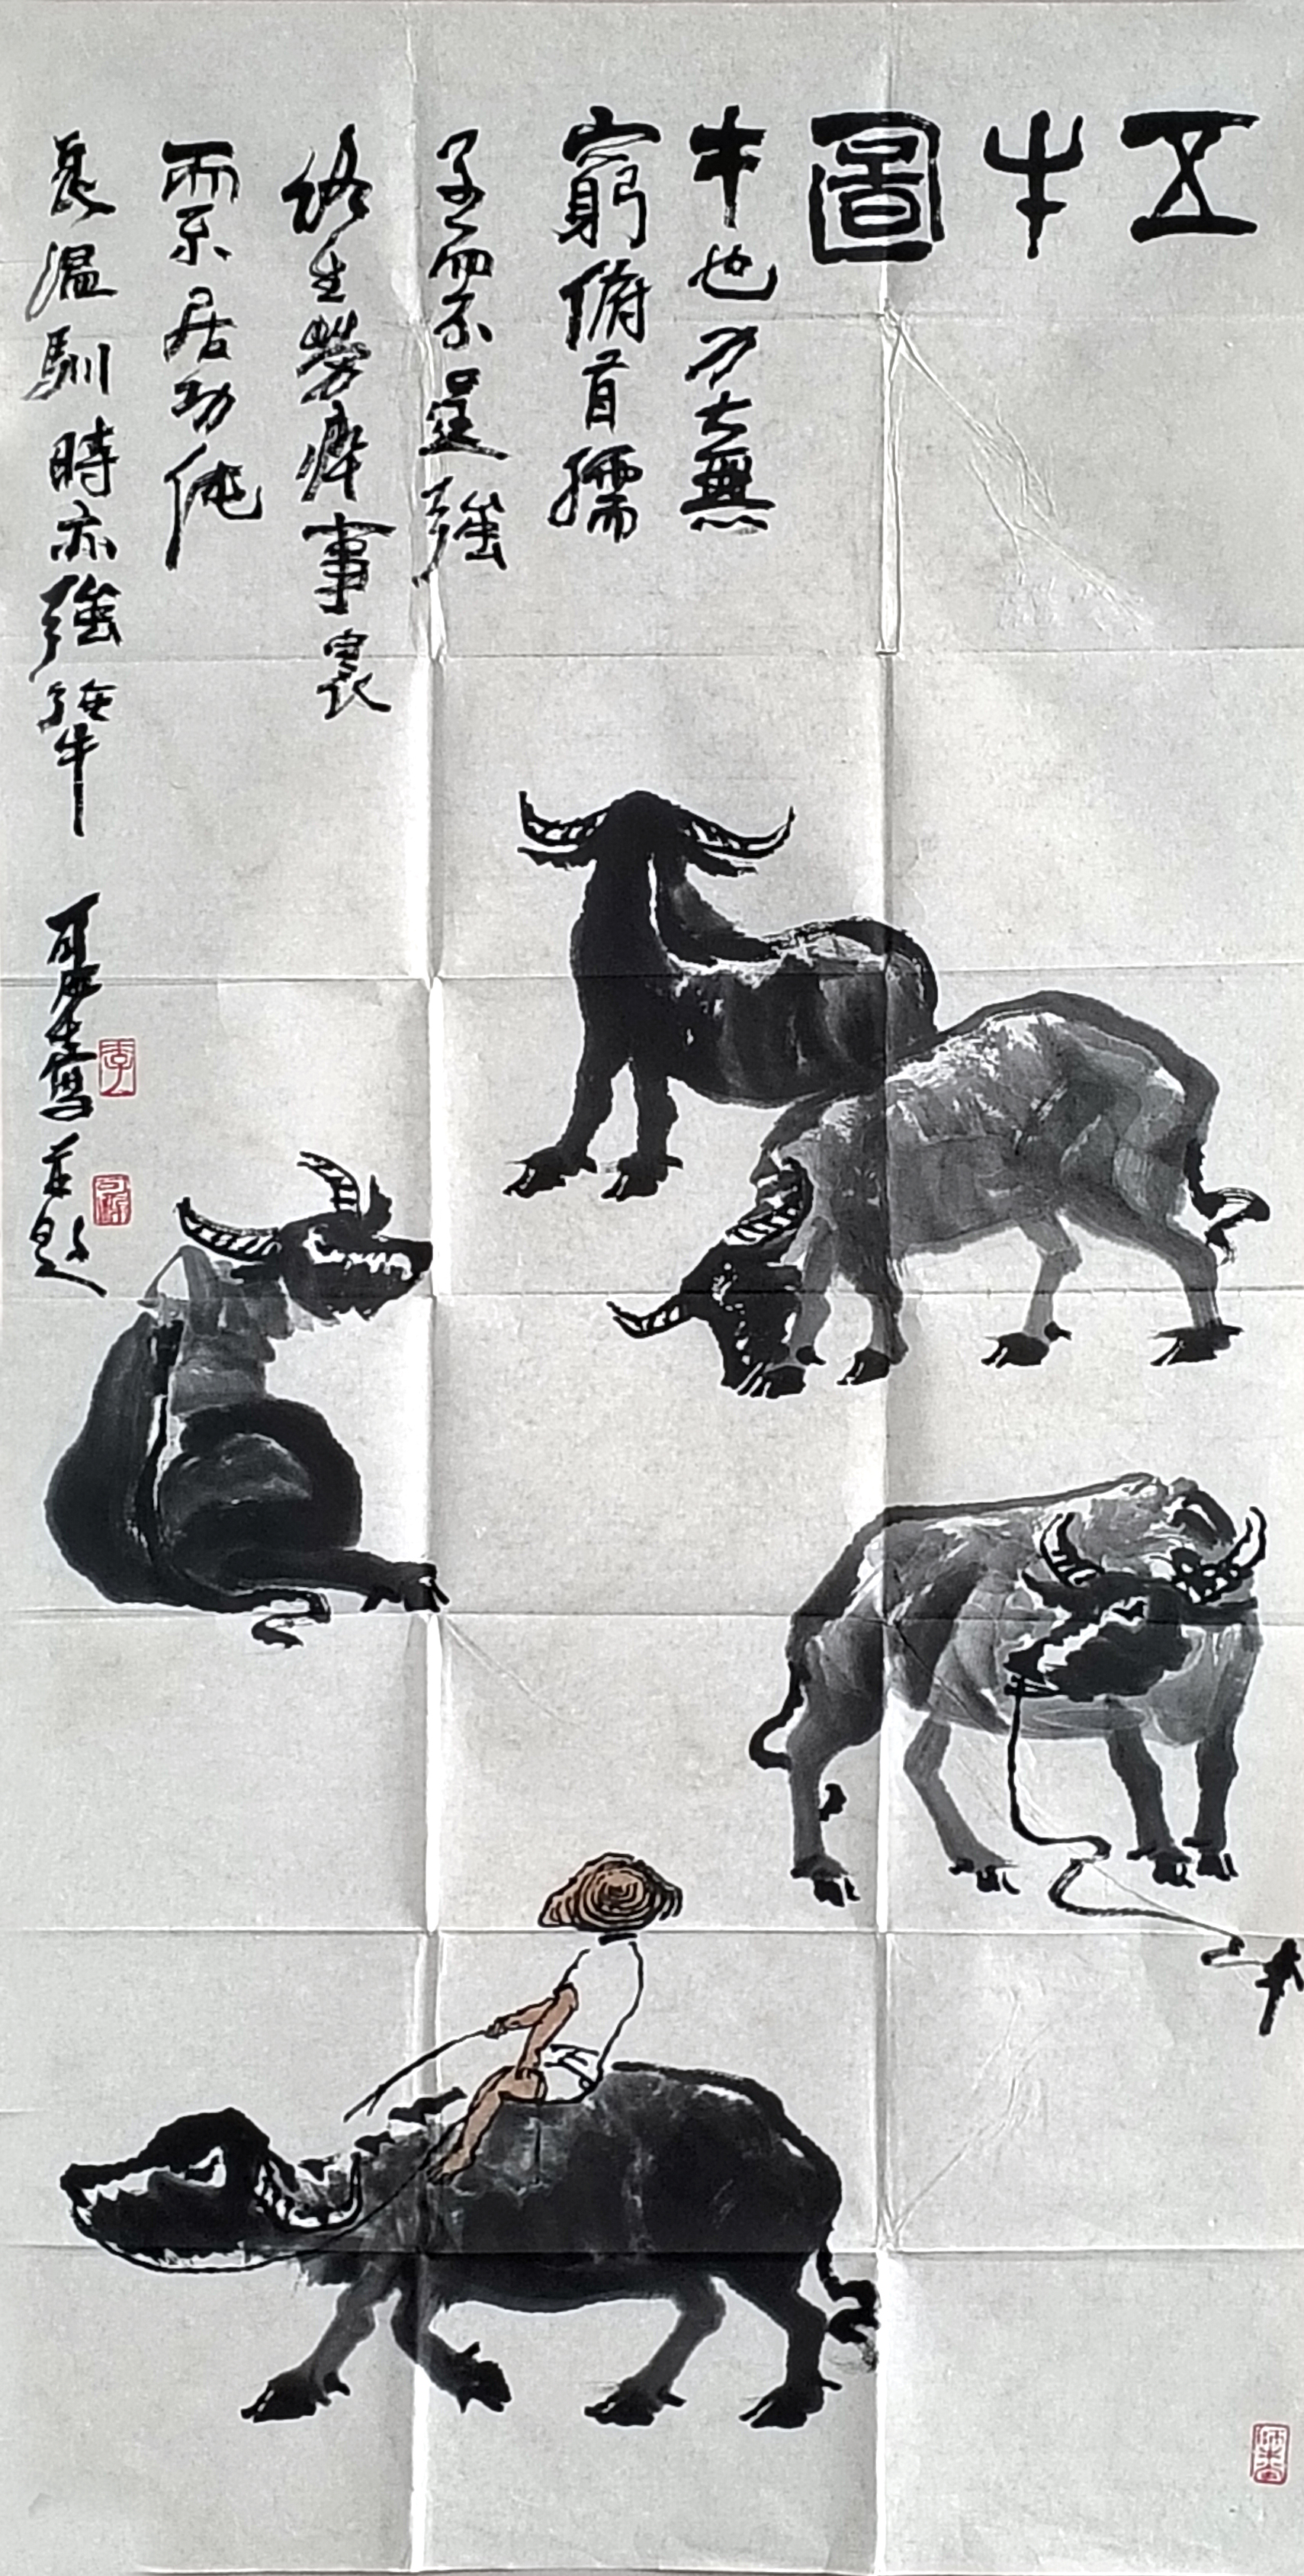 五牛圖
牛也力大無
窮俯首孺
子而不逞強
終生勞瘁事農
而不居功純
良溫馴時亦強犟
可寫並題
李
可染
師牛堂